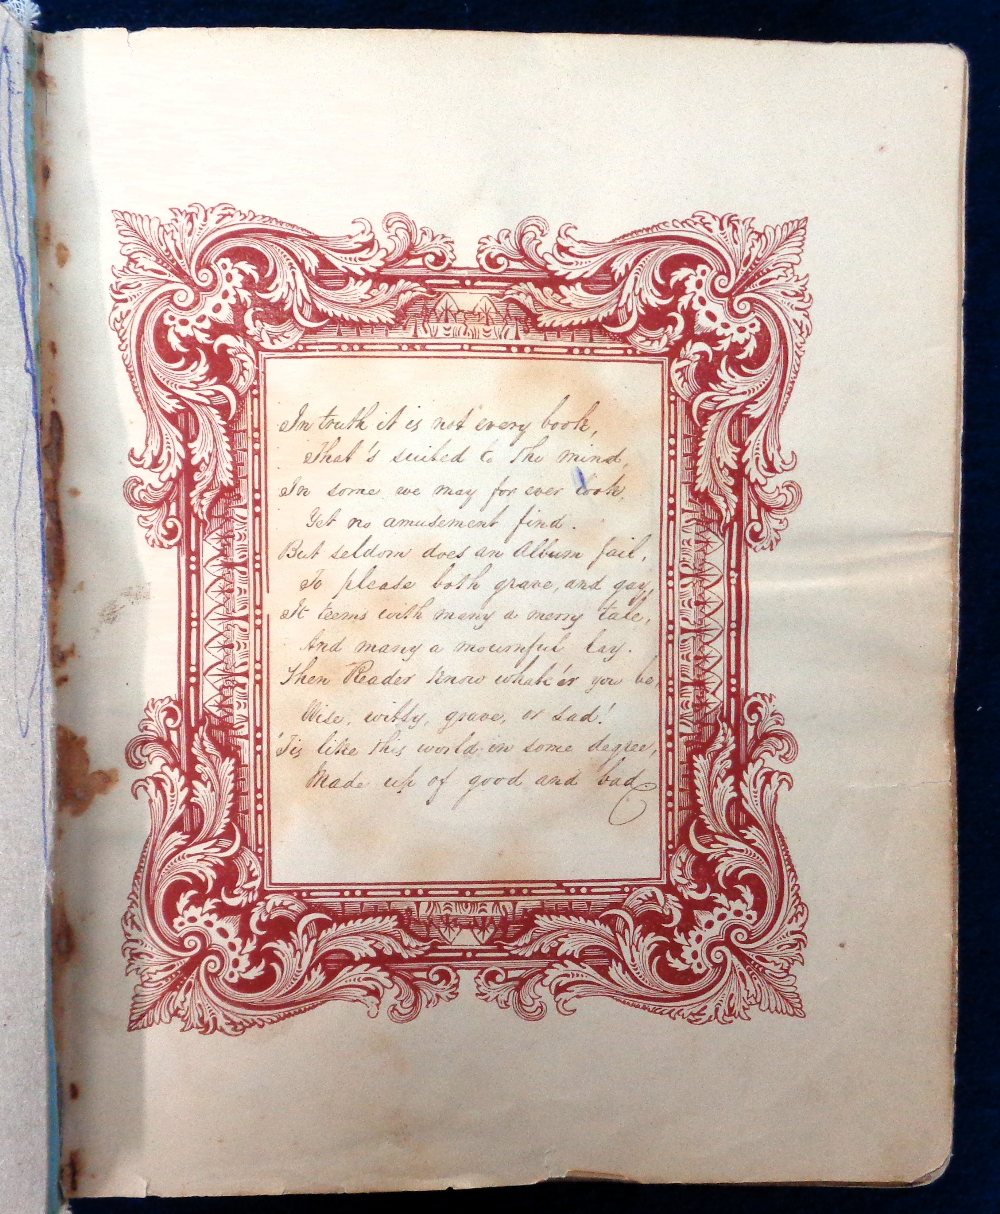 In truth it is not every book,
That's suited to the mind,
In some we may for ever look
Yet no amusement find.
But seldom does an Album fail,
To please both grave, and gay,
It teems with many a merry tale,
And many a mournful lay.
Then Reader know whate'er you be,
Wise, witty, grave, or sad!
'Tis like this world in some degree,
Made up of good and bad